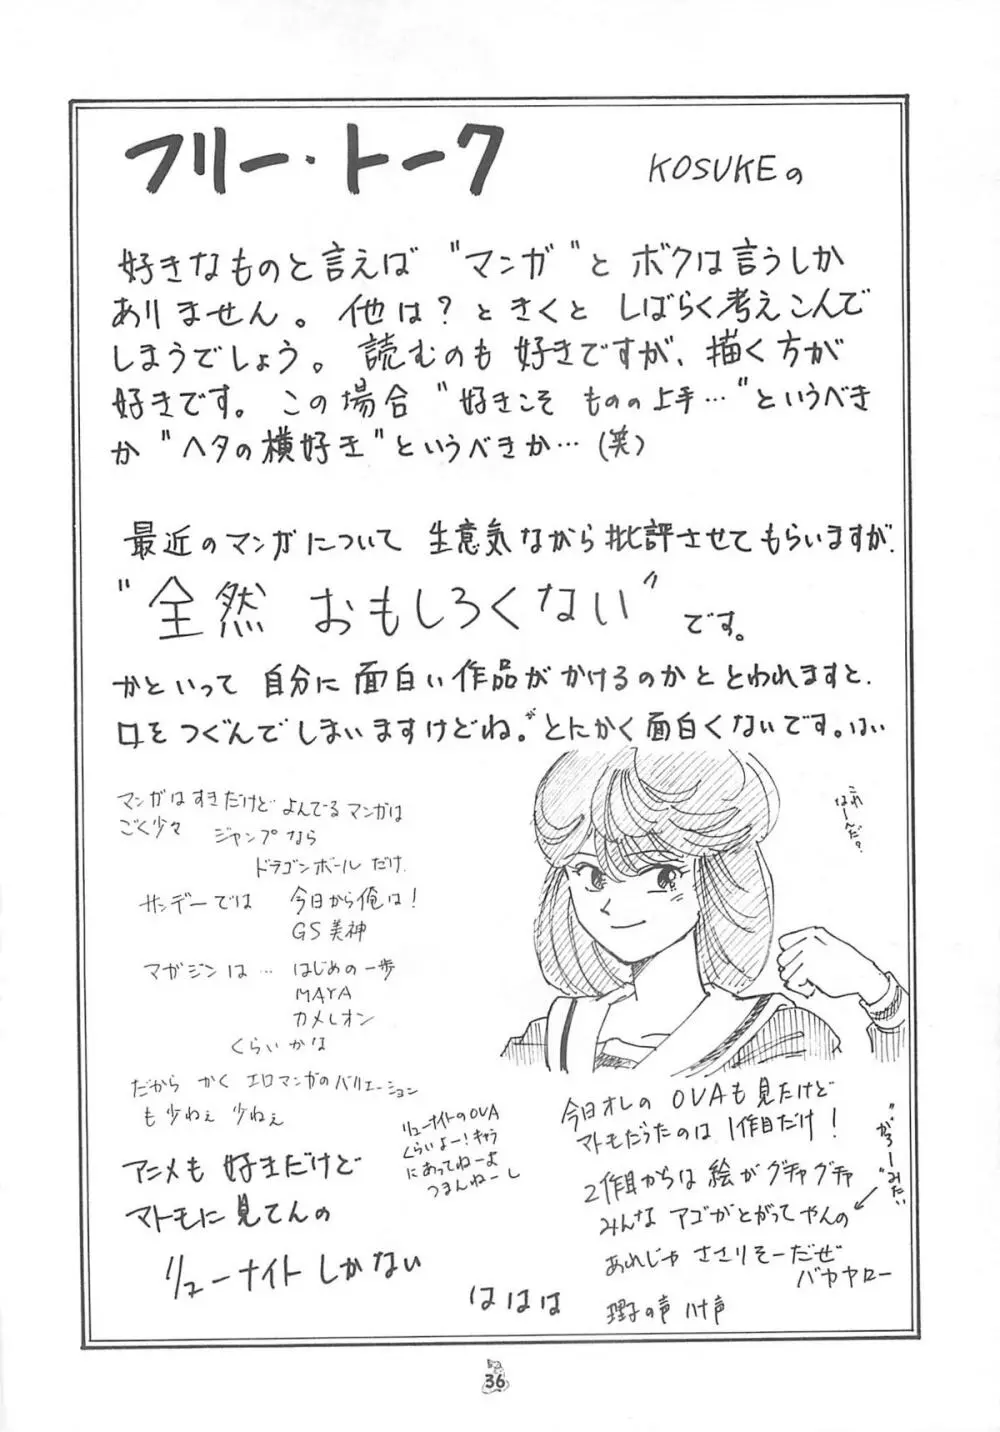 フリー・トーク
KOSUKEの
好きなものと言えば "マンガ" と ボクは言うしか
ありません。他は？ときくと しばらく考えこんで
しまうでしょう。読むのも好きですが、描く方が
好きです。この場合 "好きこそ ものの上手…" というべき
か "ヘタの横好き" というべきか…(笑)
最近のマンガについて 生意気ながら批評させてもらいますが、
"全然 おもしろくない" です。
かといって 自分に面白い作品がかけるのかと とわれますと、
口をつぐんでしまいますけどね。がとにかく面白くないです。はい
マンガはすきだけど よんでるマンガは
ごく少々 ジャンプなら
ドラゴンボールだけ
サンデーでは 今日から俺は！
GS美神
マガジンは… はじめの一歩
MAYA
カメレオン
くらいかな
だから かく エロマンガのバリエーション
も少ねぇ 少ねぇ
アニメも 好きだけど
マトモに見てんの
リューナイトしかない
リューナイトのOVA
くらいよー！キャラ
にあってねーよ
つまんねーし
ははは
これ
はーんだ？
今日オレの OVAも見たけど
マトモだったのは 1作目だけ！
2作目からは 絵がグチャグチャ
みんな アゴがとがってやんの
"がろーみたい"
あれじゃ ささりそーだぜ
バカヤロー
理子の声